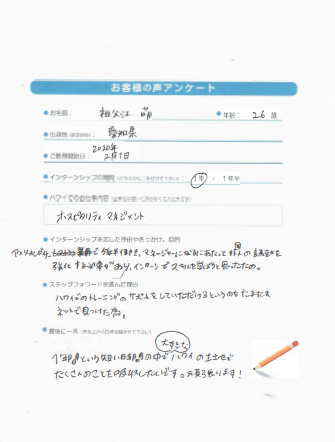 お客様の声アンケート
お名前： 祖父江 萌 年齢： 26 歳
出身地(都道府県)： 愛知県
ご勤務開始日： 2020年2月1日
インターンシップの期間 1年 ・ 1年半
ハワイでのお仕事内容
ホスピタリティ マネジメント
インターンシップをした理由やきっかけ、目的
で 働き、マネージャーになるにあたって
強化する必要があり、インターンで スキルを と思ったため。
ステップフォワードを選んだ理由
ハワイでのトレーニングのサポートをしていただけるというのをたまたま
ネットで見つけた為。
最後に一言
大好きな
1年間という短い期間の中で ハワイの土地で
たくさんのことを吸収したいです。頑張ります！